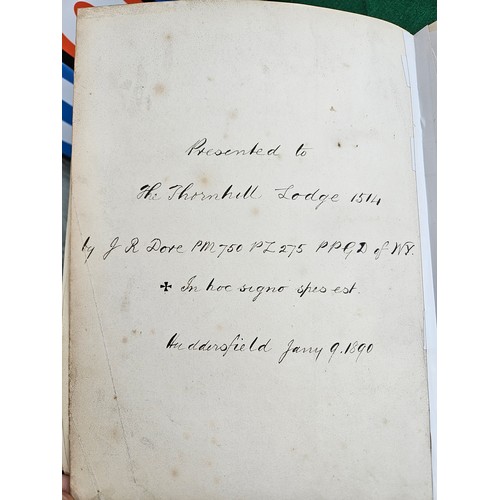 Presented to
The Thornhill Lodge 1514
by J R Dore PM 750 PZ 275 P P G D of WY.
✠ In hoc signo spes est.
Huddersfield Jany 9. 1890